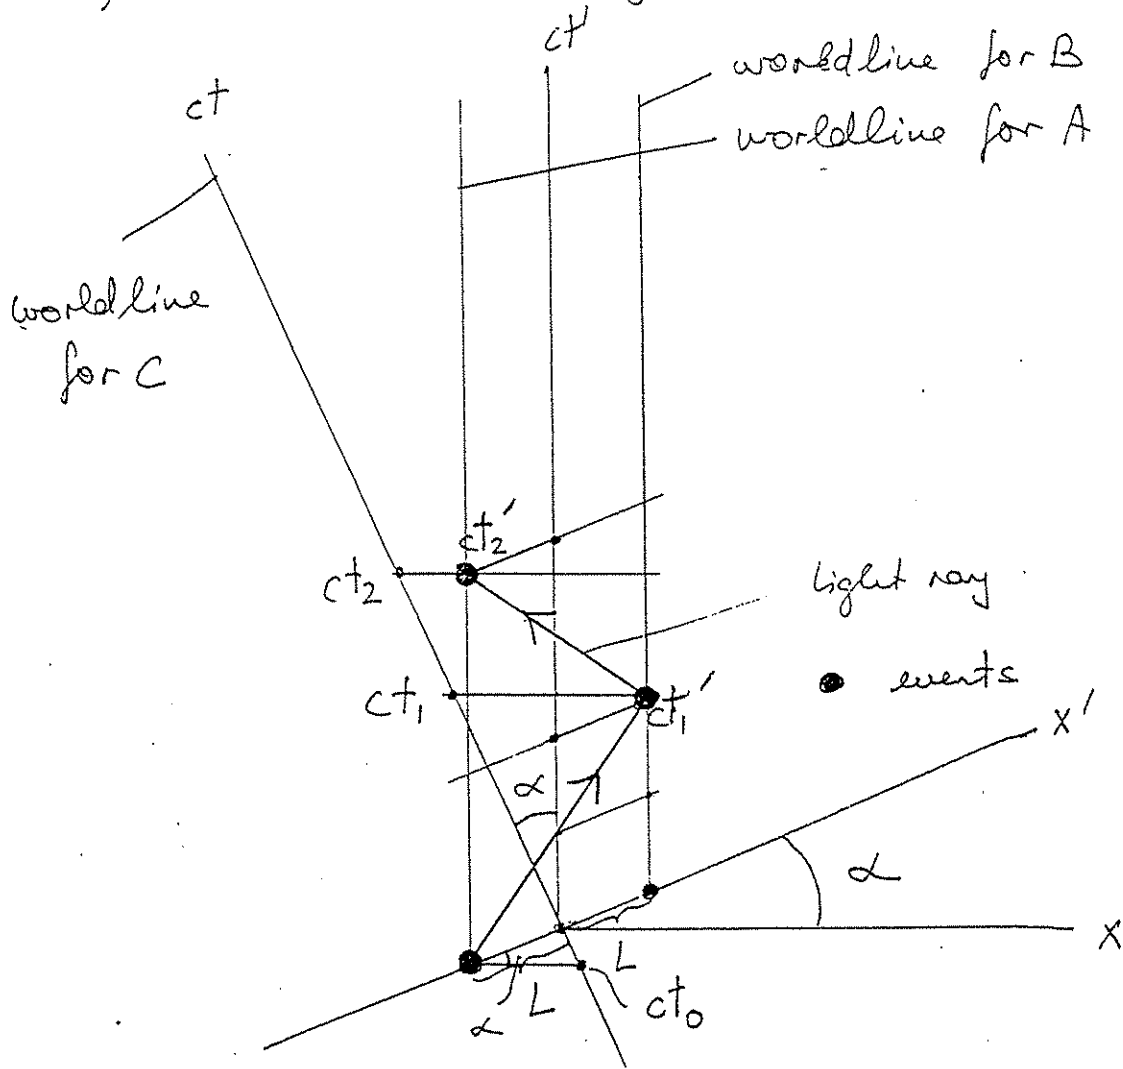 ct'
worldline for B
worldline for A
ct
worldline
for C
ct₂'
ct₂
light ray
ct₁
ct₁'
events
x'
α
α
x
L
L
α
ct₀